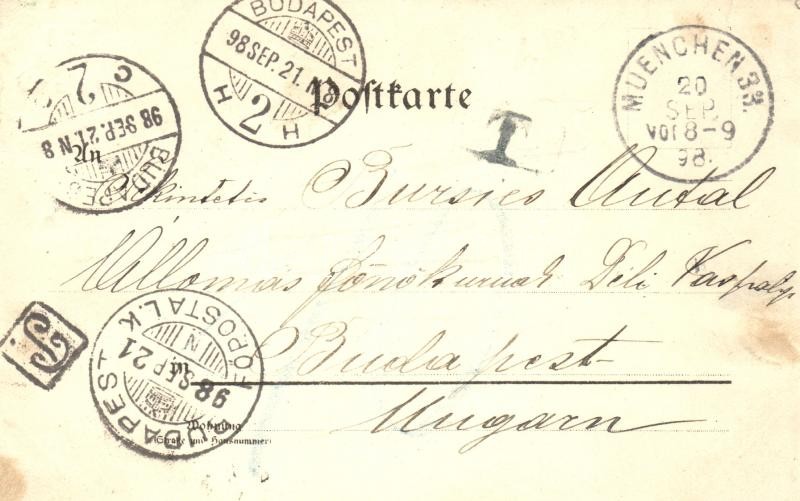 BUDAPEST
98 SEP. 21. N 8
H 2 H
C 2
98 SEP. 21 N 8
BUDAPEST
Postkarte
T
MUENCHEN 33.
20
SEP.
Vor 8-9
98.
An
Tekintetes Bursics Antal
Állomás főnök urnak Déli Vaspálya
Budapest
Ungarn
BUDAPEST FŐPOSTA L.K
98 SEP 21
N
in
Wohnung
(Straße und Hausnummer)